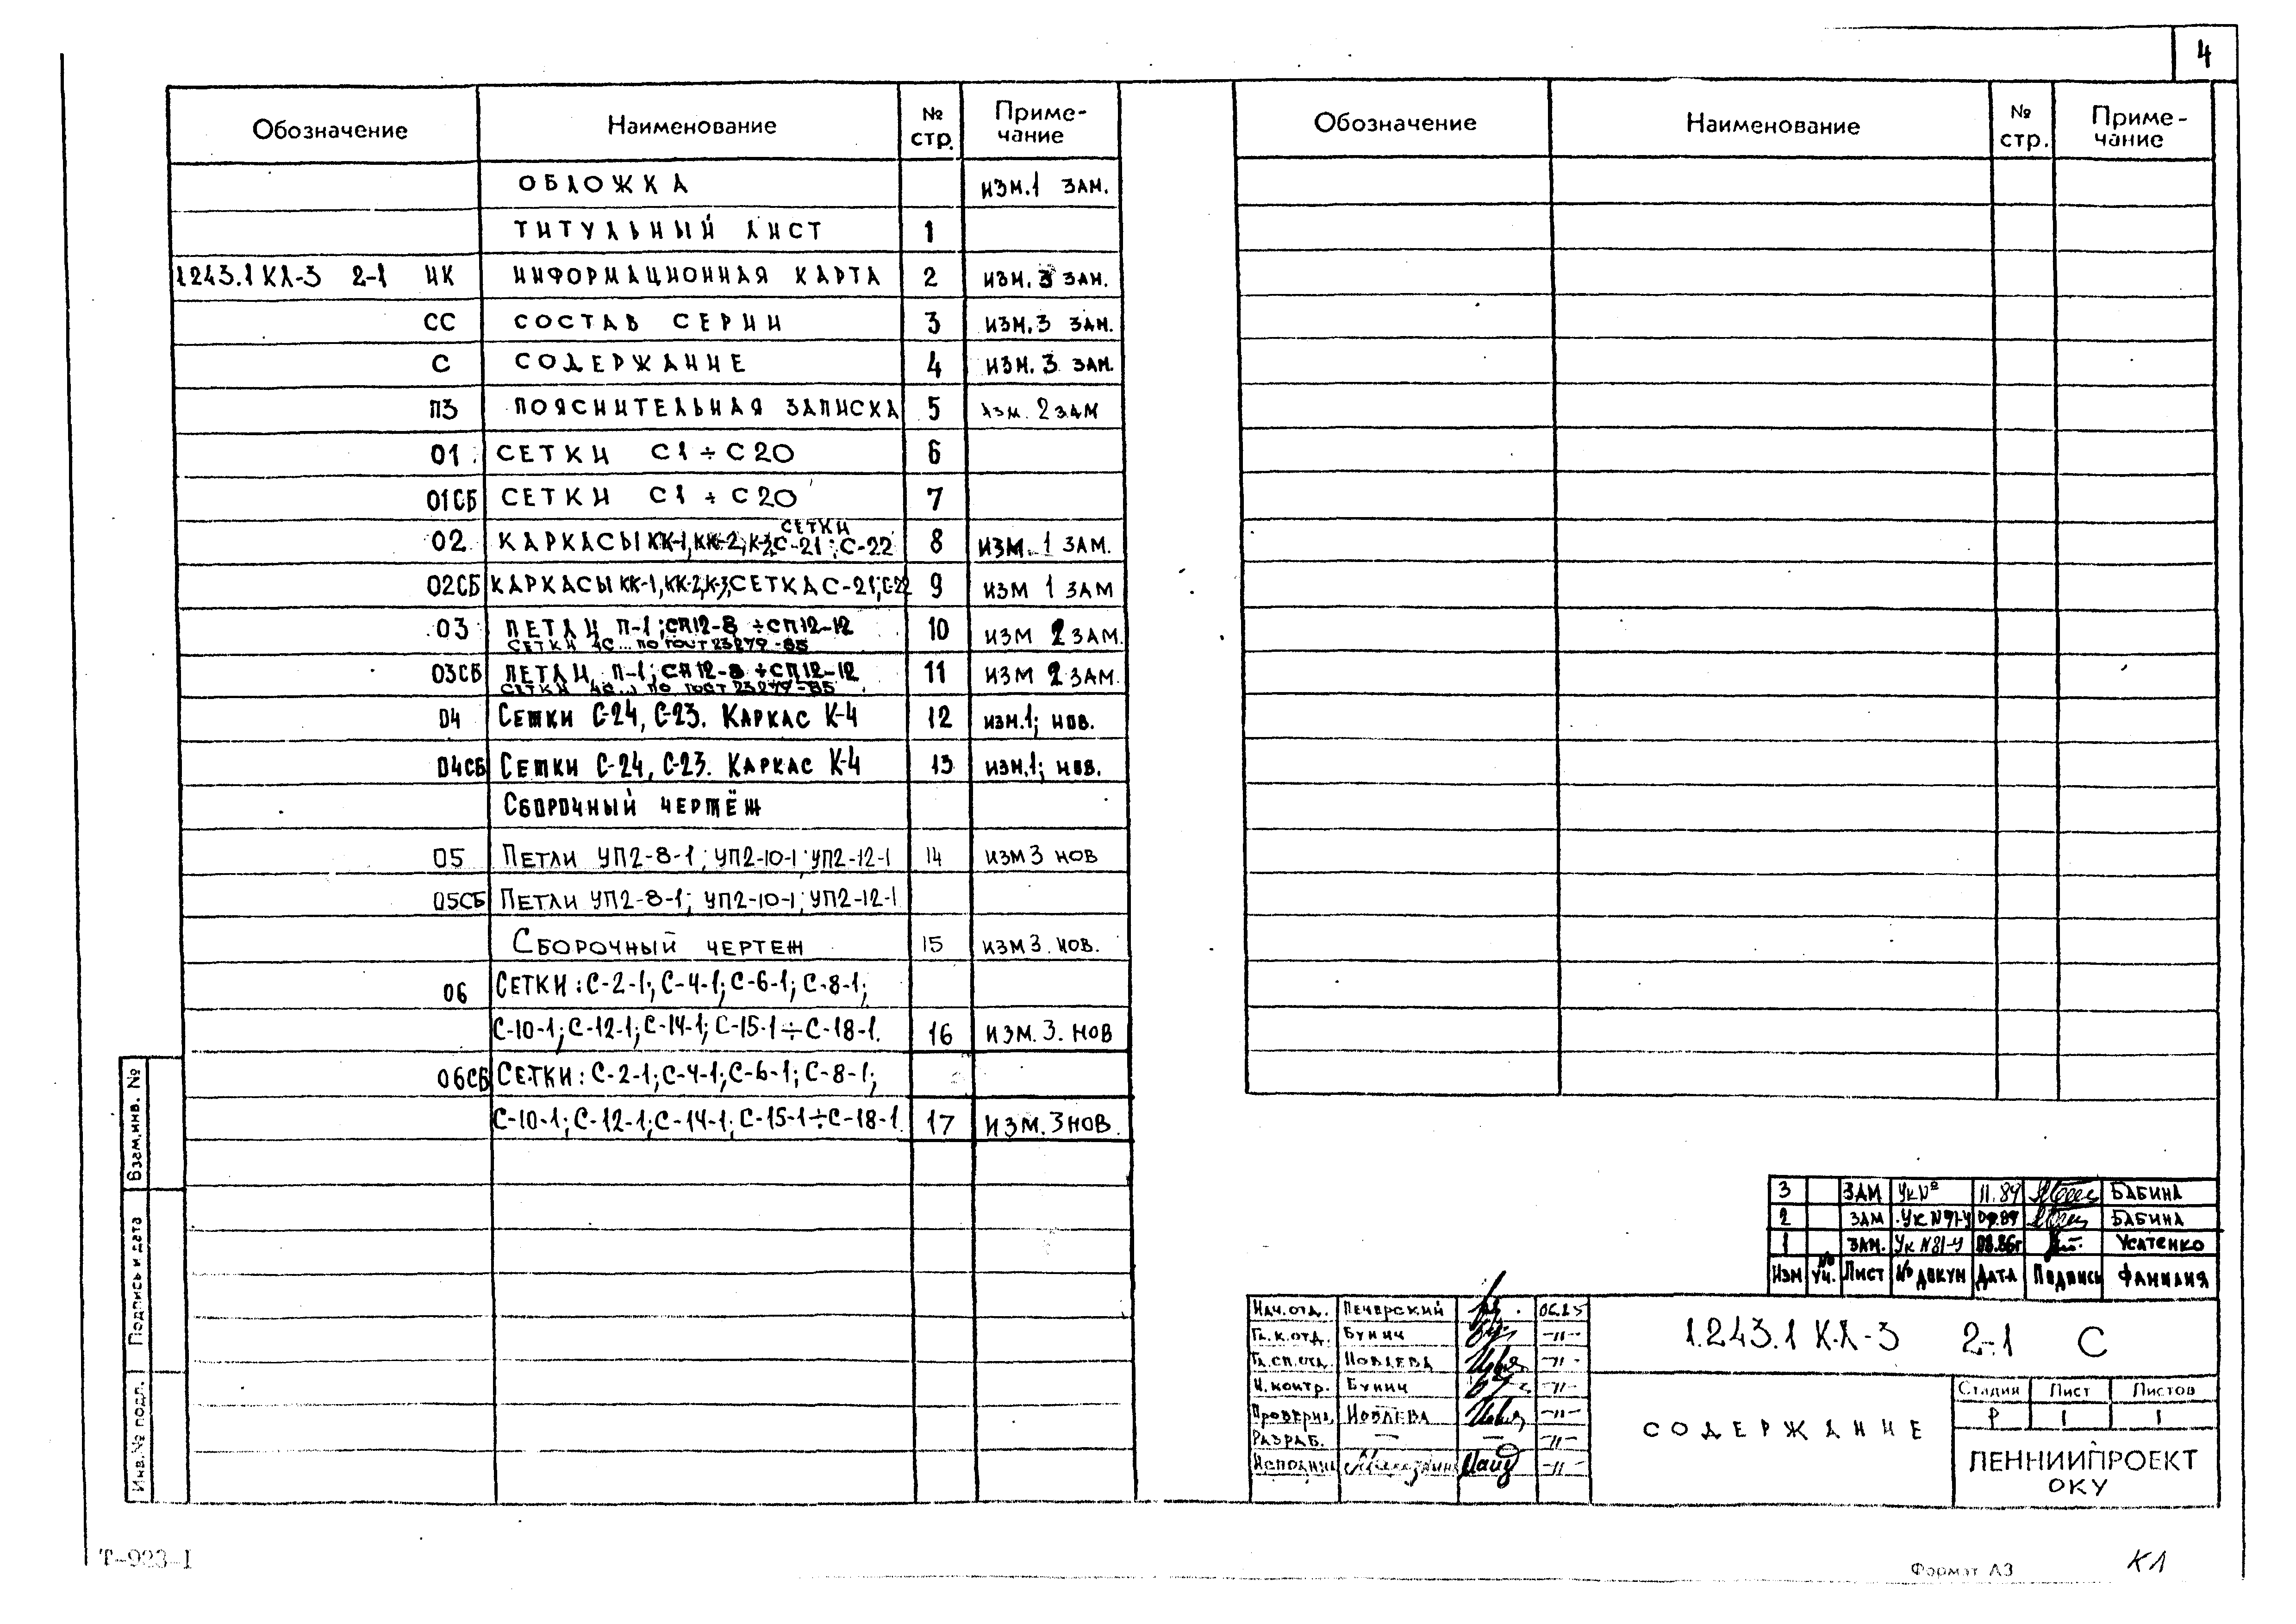 4
Обозначение Наименование № стр. Приме-чание
ОБЛОЖКА ИЗМ.1 ЗАМ.
ТИТУЛЬНЫЙ ЛИСТ 1
1.243.1 КЛ-3 2-1 ИК ИНФОРМАЦИОННАЯ КАРТА 2 ИЗМ. 3 ЗАМ.
СС СОСТАВ СЕРИИ 3 ИЗМ.3 ЗАМ.
С СОДЕРЖАНИЕ 4 ИЗМ. 3 ЗАМ.
ПЗ ПОЯСНИТЕЛЬНАЯ ЗАПИСКА 5 ИЗМ. 2 ЗАМ
01 СЕТКИ С1÷С20 6
01СБ СЕТКИ С1÷С20 7
СЕТКИ
02 КАРКАСЫ КК-1, КК-2, К-3, С-21; С-22 8 ИЗМ. 1 ЗАМ.
02СБ КАРКАСЫ КК-1, КК-2, К-3, СЕТКА С-21; С-22 9 ИЗМ 1 ЗАМ
03 ПЕТЛИ П-1; СП12-8 ÷ СП12-12 10 ИЗМ 2 ЗАМ.
СЕТКИ 4С... ПО ГОСТ 23279-85
03СБ ПЕТЛИ П-1; СП12-8 ÷ СП12-12 11 ИЗМ 2 ЗАМ.
СЕТКИ 4С... ПО ГОСТ 23279-85
04 Сетки С-24, С-23. Каркас К-4 12 изм.1; нов.
04СБ Сетки С-24, С-23. Каркас К-4 13 изм.1; нов.
Сборочный чертёж
05 Петли УП2-8-1; УП2-10-1; УП2-12-1 14 ИЗМ 3 НОВ
05СБ Петли УП2-8-1; УП2-10-1; УП2-12-1
Сборочный чертеж 15 ИЗМ 3. НОВ.
06 СЕТКИ: С-2-1; С-4-1; С-6-1; С-8-1;
С-10-1; С-12-1; С-14-1; С-15-1÷С-18-1. 16 ИЗМ. 3. НОВ
06СБ СЕТКИ: С-2-1; С-4-1; С-6-1; С-8-1;
С-10-1; С-12-1; С-14-1; С-15-1÷С-18-1. 17 ИЗМ. 3 НОВ.
Обозначение Наименование № стр. Приме-чание
Взам.инв. №
Подпись и дата
Инв.№ подл.
3 ЗАМ УК № 11.89 БАБИНА
2 ЗАМ УК N91-У 09.89 БАБИНА
1 ЗАМ. УК N81-У 08.86г УСАТЕНКО
Изм № уч. Лист № докум Дата Подпись Фамилия
Нач.отд. Печерский 06.85
Гл.к.отд. Бунич -11-
Гл.сп.отд. Новлева -11-
Н.контр. Бунич -11-
Проверил Новлева -11-
Разраб. — — -11-
Исполнил -11-
1.243.1 КЛ-3 2-1 С
СОДЕРЖАНИЕ
Стадия Лист Листов
Р 1 1
ЛЕННИИПРОЕКТ
ОКУ
Т-923-1
Формат А3
КЛ